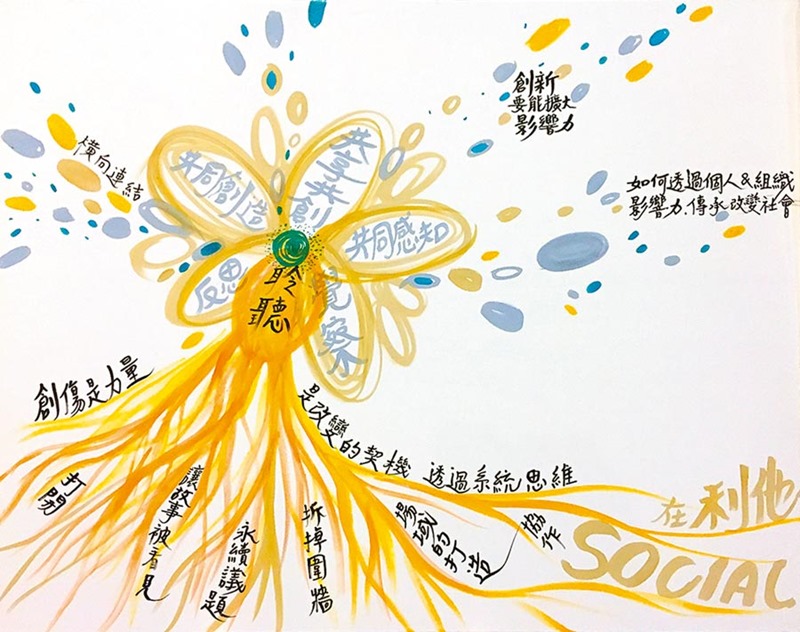 創新
要能擴大
影響力
橫向連結
如何透過個人&組織
影響力、傳承改變社會
共同創造
共享共創
共同感知
反思
覺察
聆聽
創傷是力量
是改變的契機
透過系統思維
打開
讓故事被看見
永續議題
拆掉圍牆
場域的打造
協作
在利他
SOCIAL